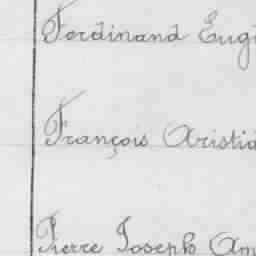 Ferdinand Eugè
François Aristid
Pierre Joseph Am